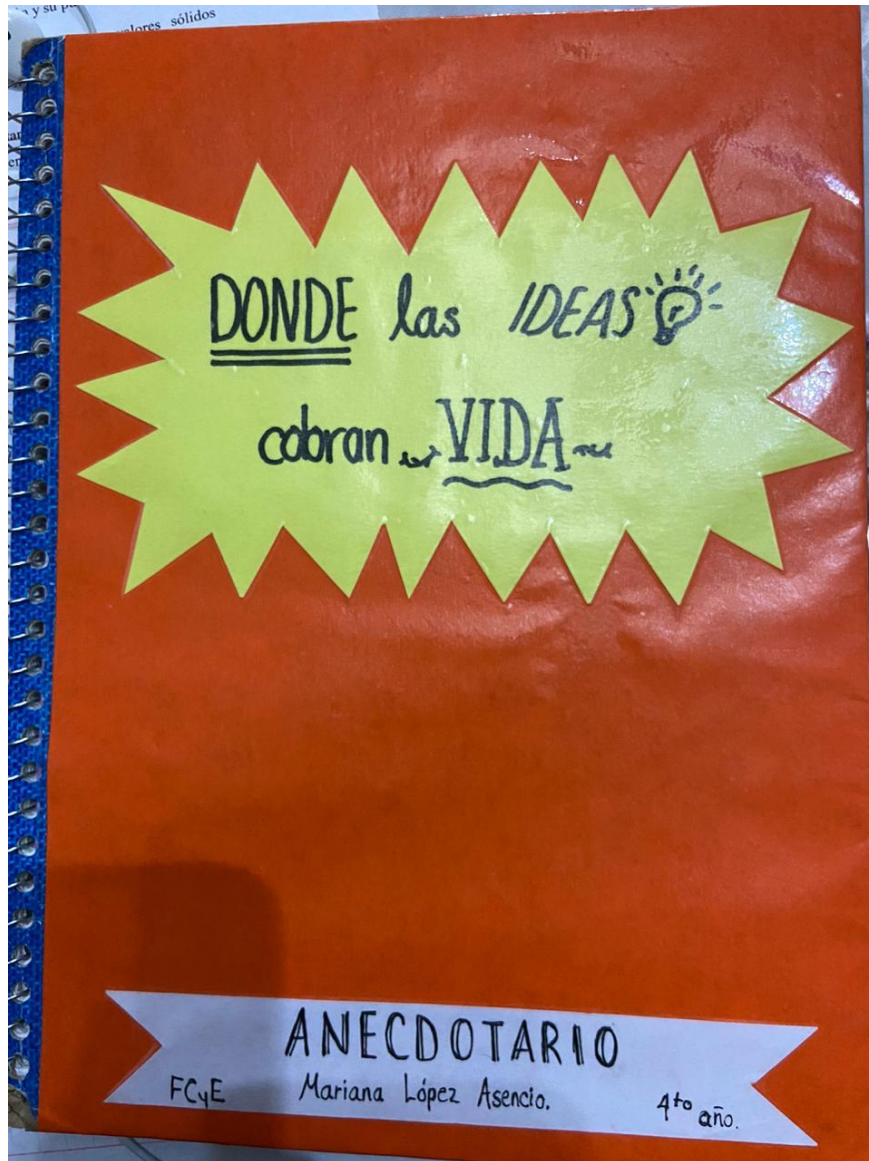 valores sólidos
DONDE las IDEAS
cobran VIDA
ANECDOTARIO
FCyE Mariana López Asencio. 4to año.